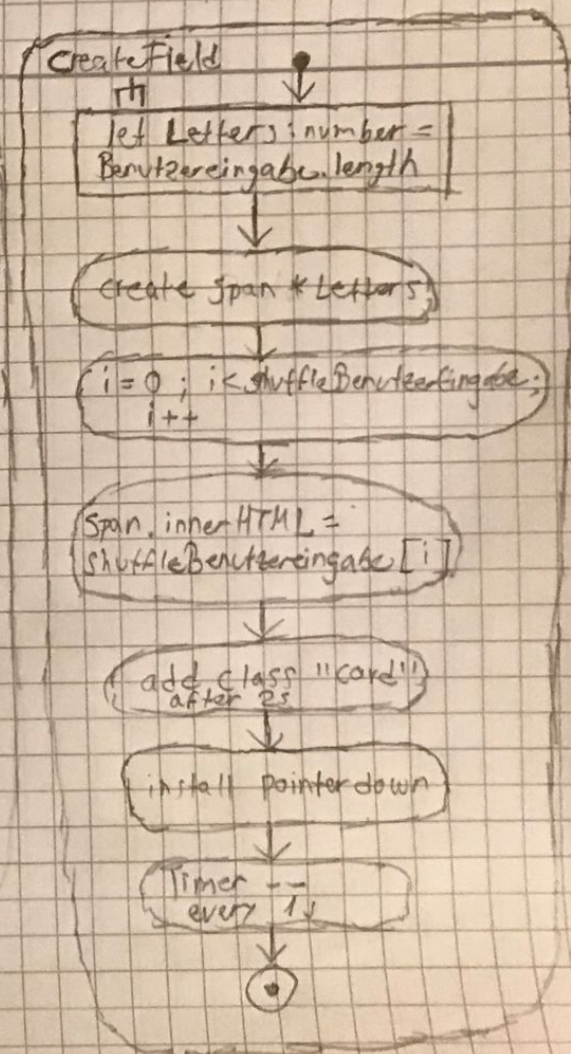 createField
let Letters: number =
Benutzereingabe.length
create span * Letters
i = 0 ; i < shuffleBenutzerEingabe ;
i++
span.innerHTML =
shuffleBenutzereingabe [i]
add class "card"
after 2s
install pointer down
Timer --
every 1s